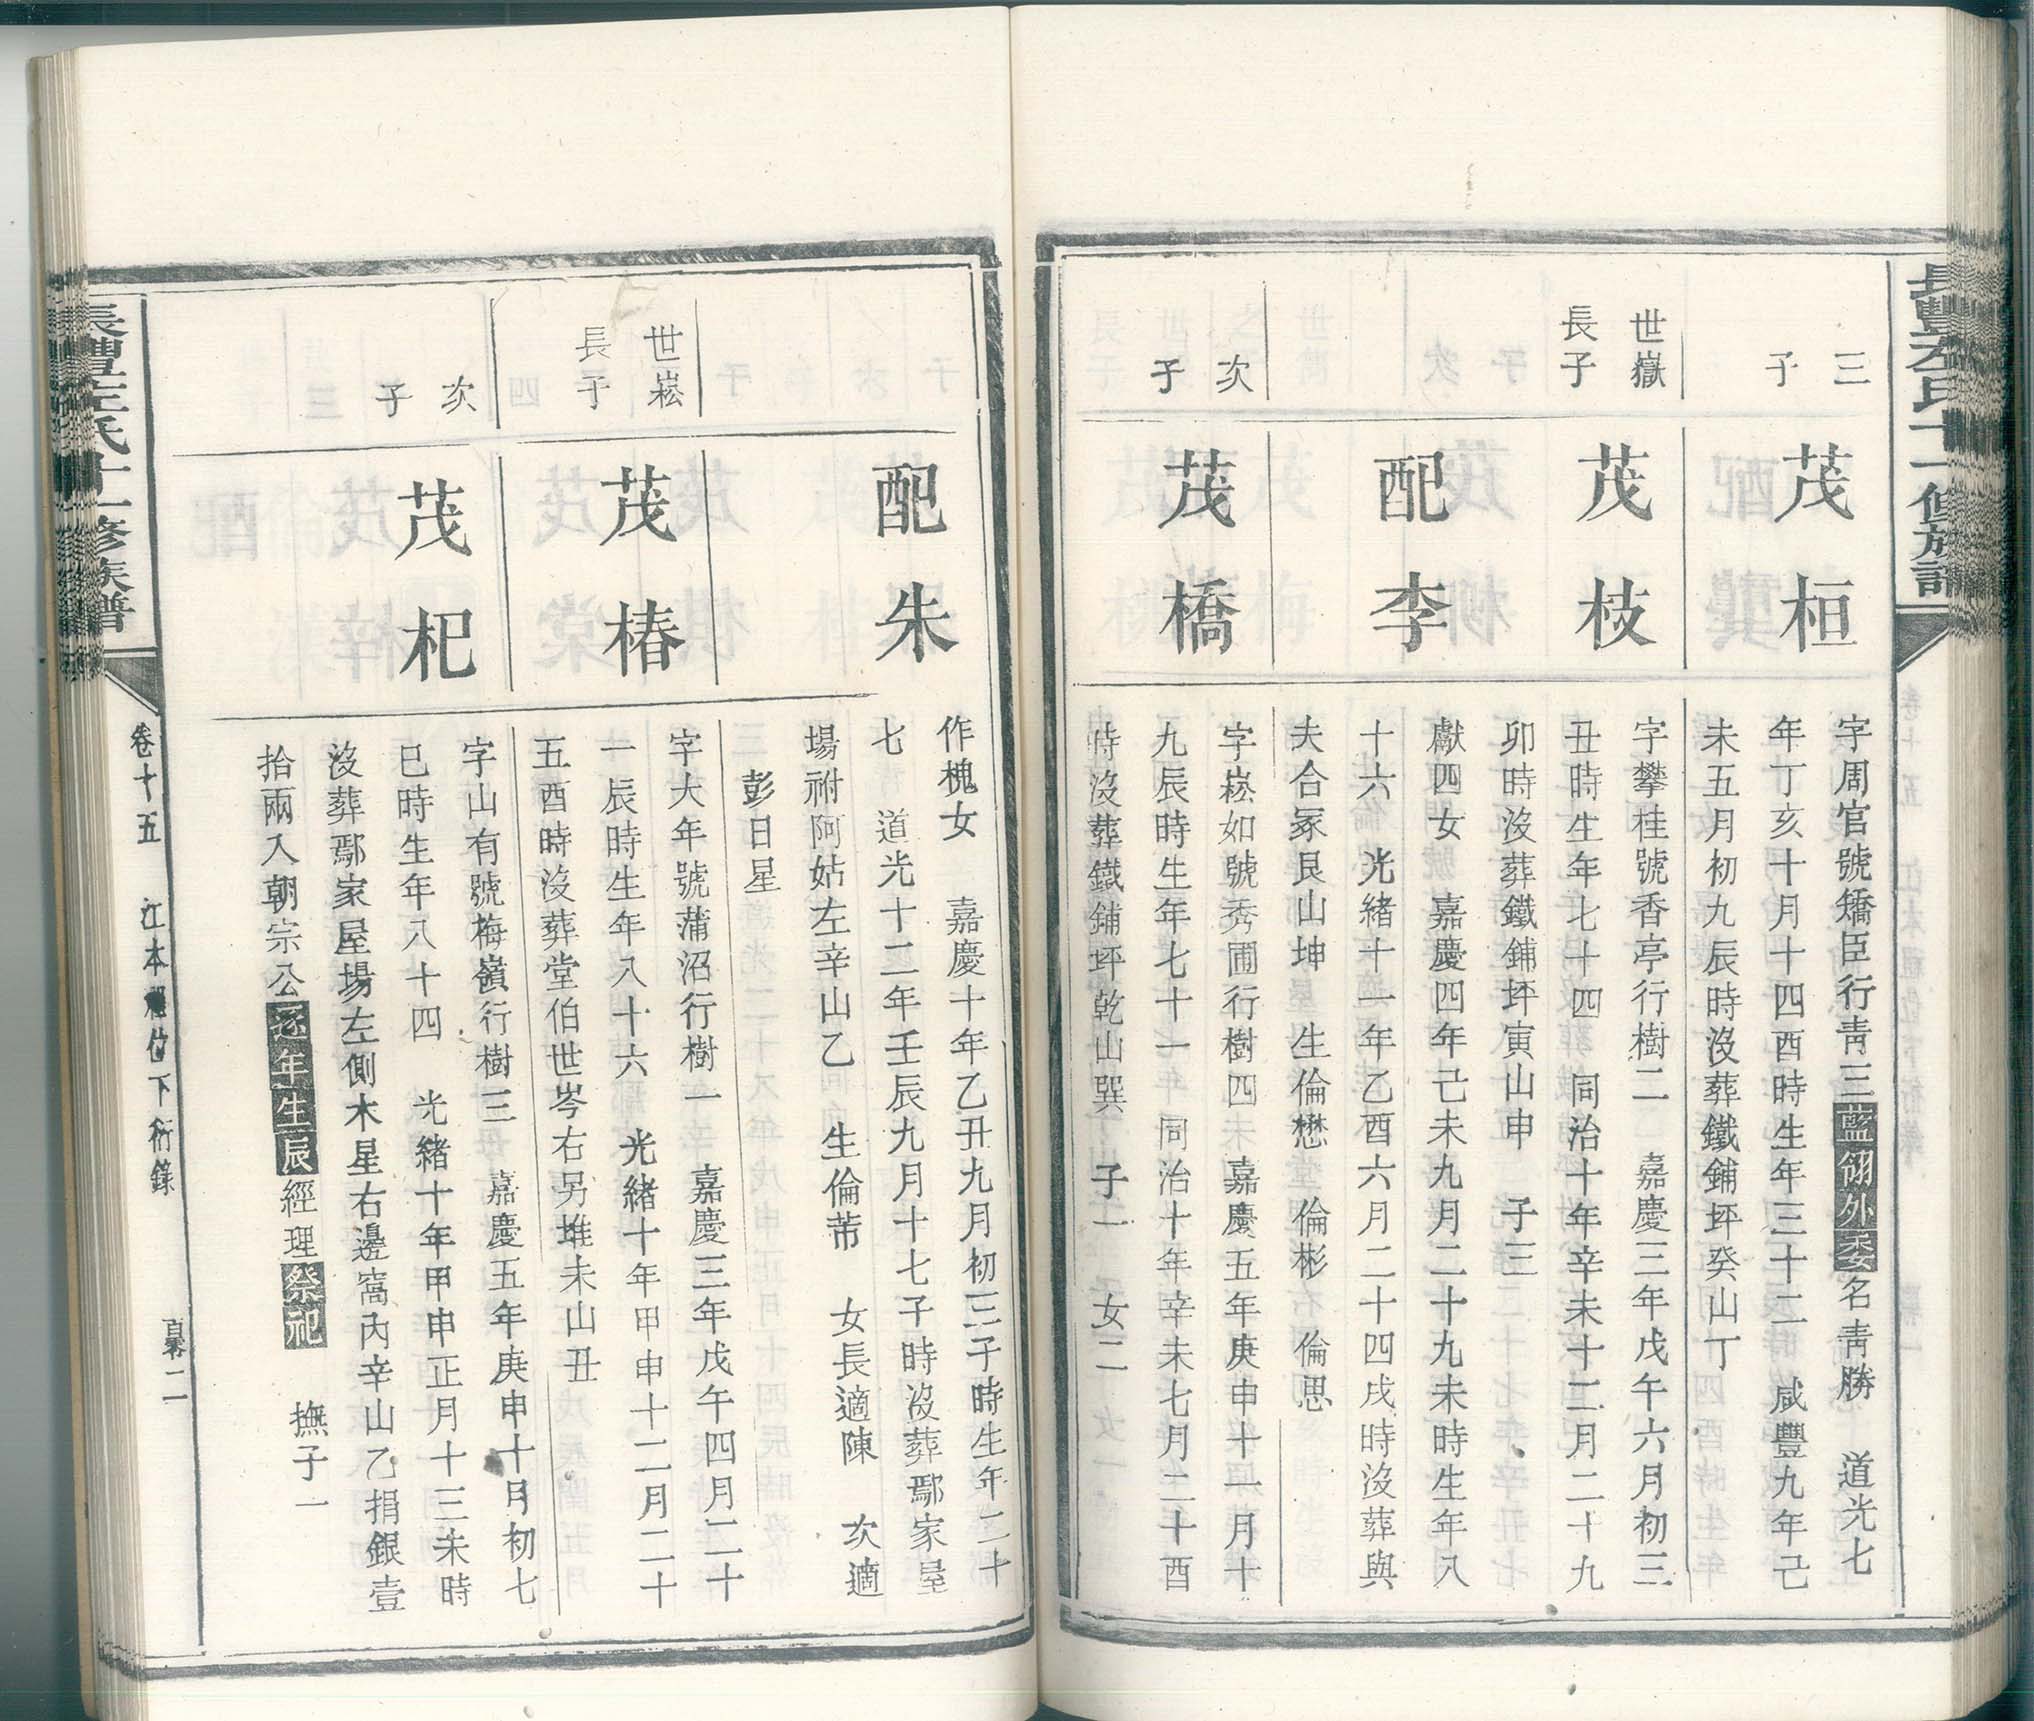 長豐左氏十一修族譜
三
子
茂桓
字周官號矯臣行靑三藍翎外委名靑勝　道光七
年丁亥十月十四酉時生年三十二　咸豐九年己
未五月初九辰時沒葬鐵鋪坪癸山丁
世嶽
長子
茂枝
字攀桂號香亭行樹二　嘉慶三年戊午六月初三
丑時生年七十四　同治十年辛未十二月二十九
卯時沒葬鐵鋪坪寅山申　子三
配李
獻四女　嘉慶四年己未九月二十九未時生年八
十六　光緒十一年乙酉六月二十四戌時沒葬與
夫合冢艮山坤　生倫懋　倫彬　倫思
次
子
茂橋
字崧如號秀圃行樹四　嘉慶五年庚申十一月十
九辰時生年七十一　同治十年辛未七月二十酉
時沒葬鐵鋪坪乾山巽　子一　女二
配朱
作槐女　嘉慶十年乙丑九月初三子時生年二十
七　道光十二年壬辰九月十七子時沒葬鄢家屋
場祔阿姑左辛山乙　生倫芾　女長適陳　次適
彭日星
世崧
長子
茂椿
字大年號蒲沼行樹一　嘉慶三年戊午四月二十
一辰時生年八十六　光緒十年甲申十二月二十
五酉時沒葬堂伯世岑右另堆未山丑
次
子
茂杞
字山有號梅嶺行樹三　嘉慶五年庚申十月初七
巳時生年八十四　光緒十年甲申正月十三未時
沒葬鄢家屋場左側木星右邊窩內辛山乙捐銀壹
拾兩入朝宗公逐年生辰經理祭祀　撫子一
長豐左氏十一修族譜
卷十五　江本種位下衍錄　百零二